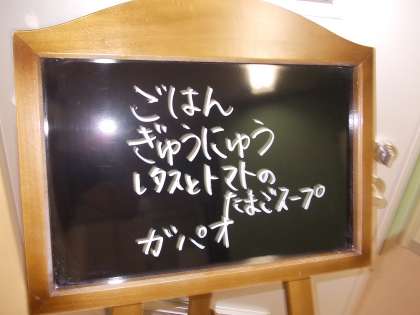 ごはん
ぎゅうにゅう
レタスとトマトの
たまごスープ
ガパオ